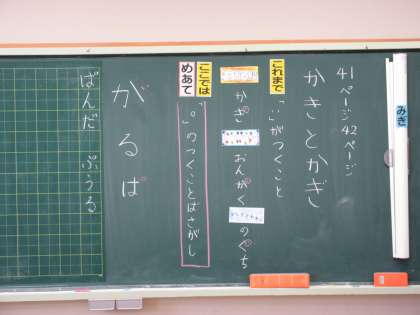 みぎ
41ページ 42ページ
かきとかぎ
これまで
「゛」がつくこと
かぎ
おんがく
のぐち
ここでは
めあて
「゜」のつくことばさがし
がるぱ
ぱんだ ぷうる